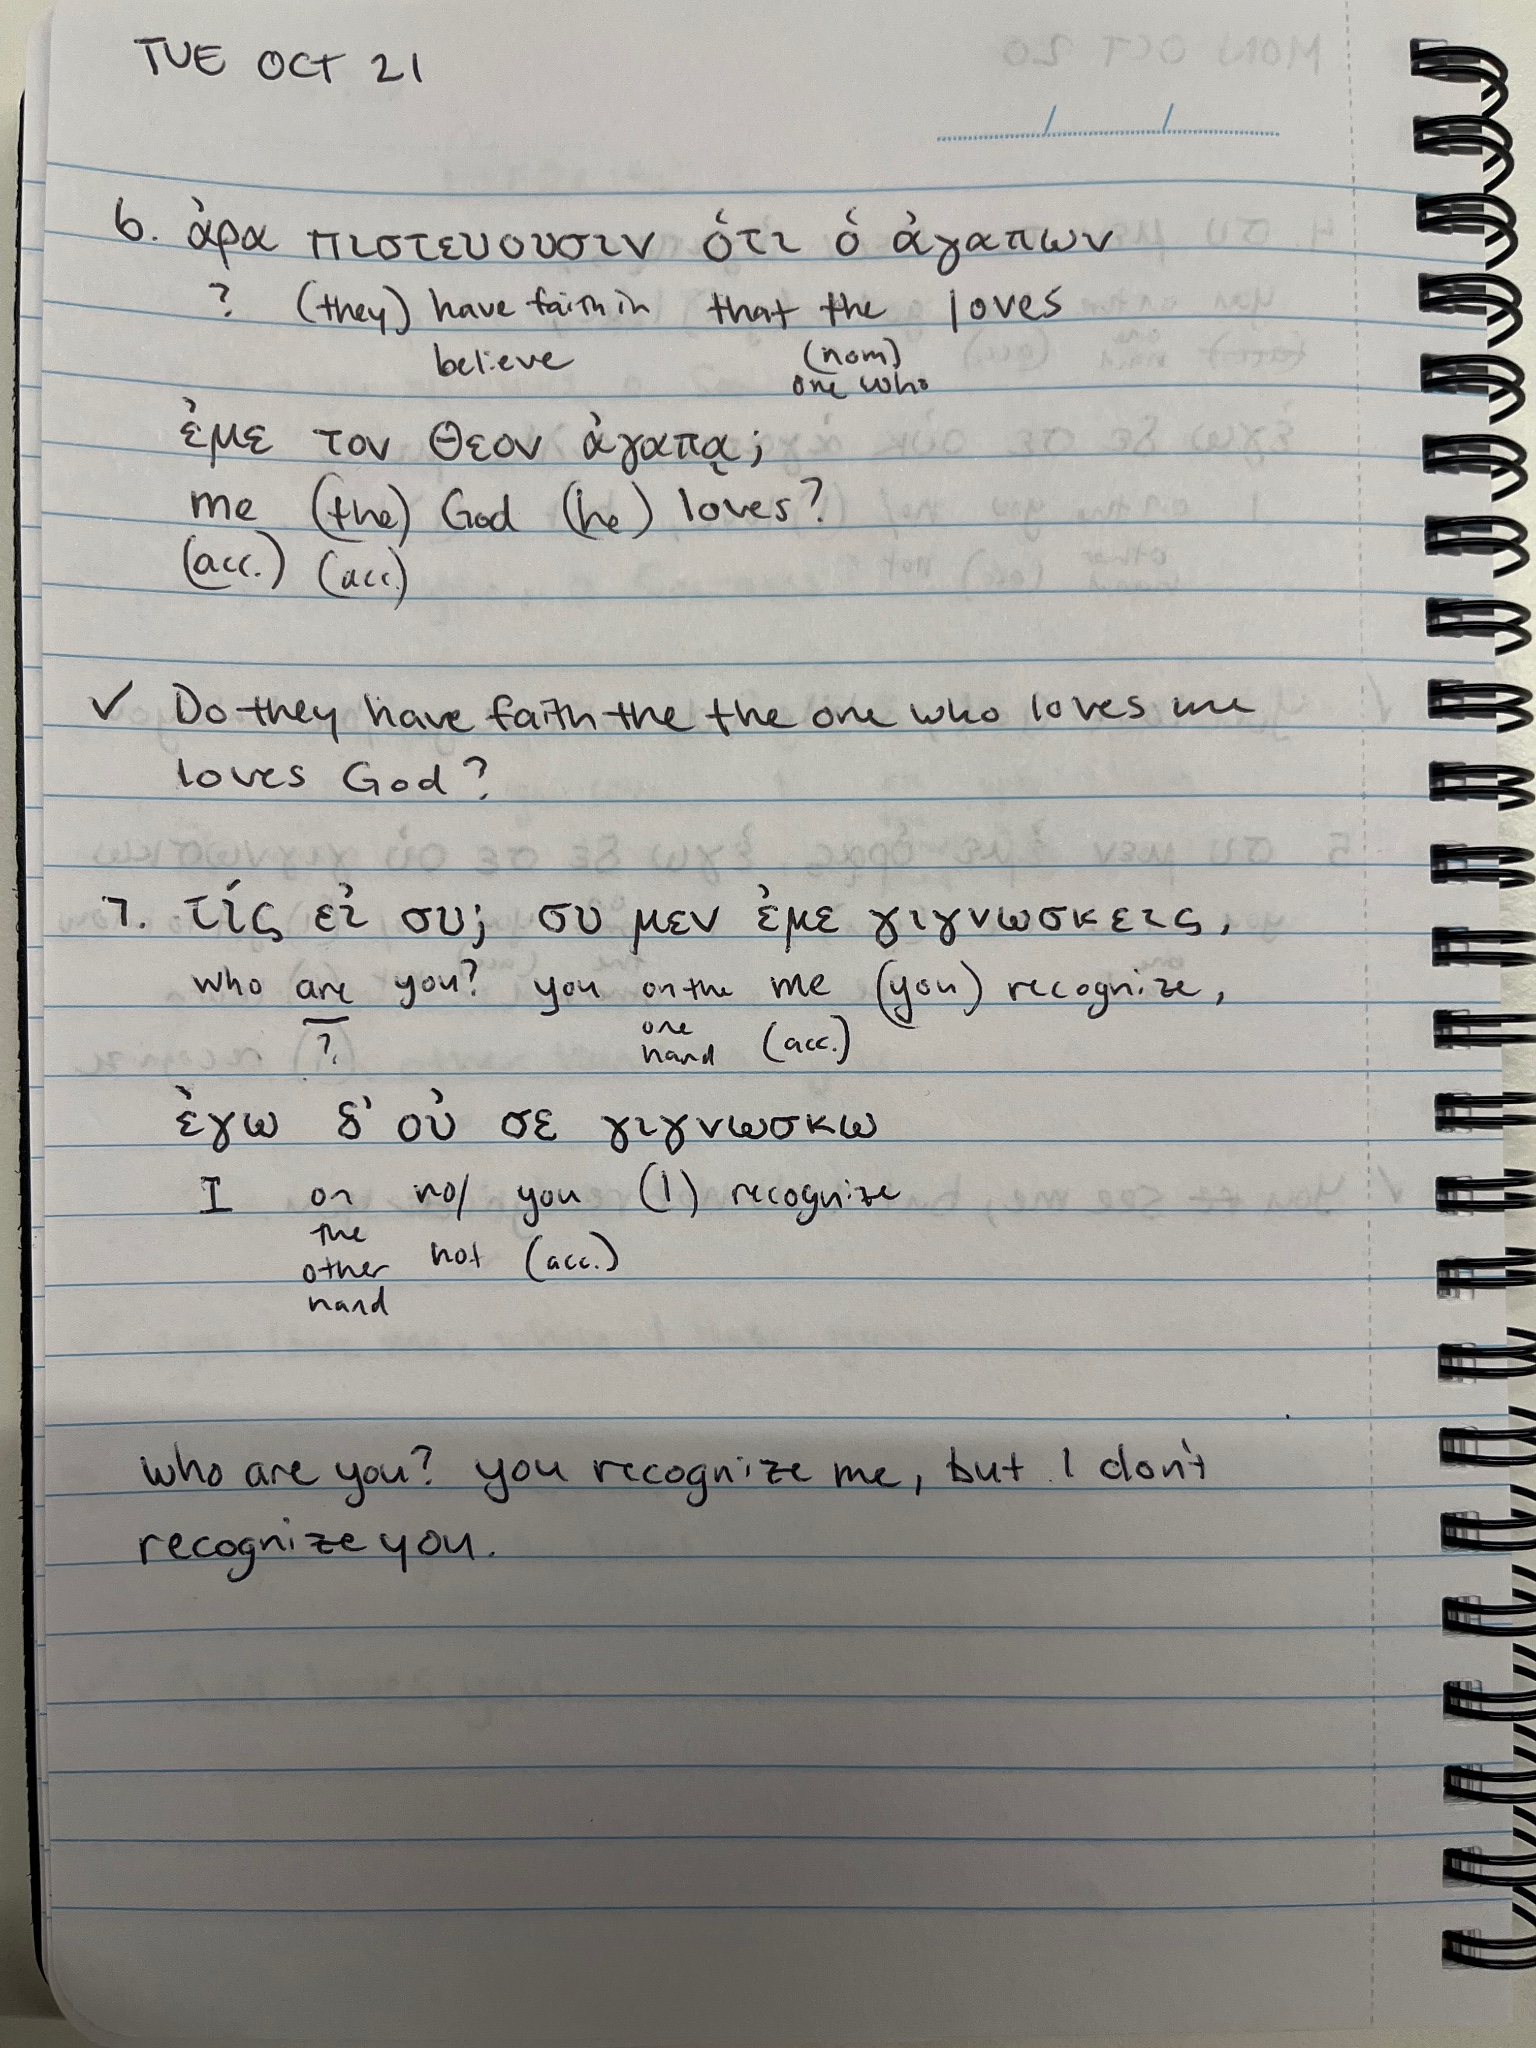 TUE OCT 21
6. ἀρα πιστευουσιν ὁτι ὁ ἀγαπων
? (they) have faith in that the loves
believe (nom)
one who
ἐμε τον Θεον ἀγαπᾳ;
me (the) God (he) loves?
(acc.) (acc.)
✓ Do they have faith the the one who loves me
loves God?
7. τίς εἰ συ; συ μεν ἐμε γιγνωσκεις,
who are you? you on the me (you) recognize,
? one (acc.)
hand
ἐγω δ' οὐ σε γιγνωσκω
I on no/ you (I) recognize
the
other not (acc.)
hand
who are you? you recognize me, but I don't
recognize you.